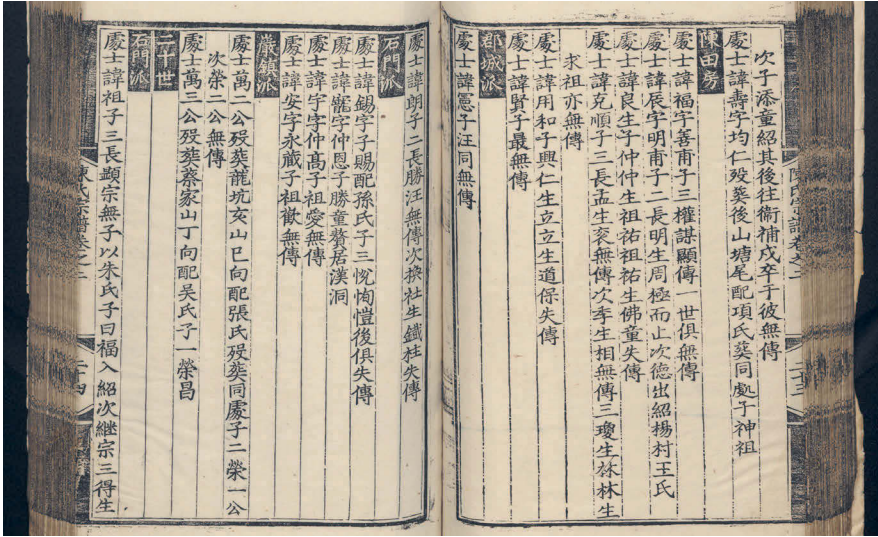 次子添童紹其後往衞補戍卒于彼無傳
處士諱壽字均仁歿葬後山塘尾配項氏葬同處子神祖
陳田房
處士諱福字善甫子三權謀顯傳一世俱無傳
處士諱辰字明甫子二長明生周極而止次德出紹楊村王氏
處士諱良生子仲仲生祖祐祖祐生佛童失傳
處士諱克順子三長孟生衮無傳次季生相無傳三瓊生林林生
求祖亦無傳
處士諱用和子興仁生立立生道保失傳
處士諱賢子最無傳
郡城派
處士諱憲子汪同無傳
處士諱朗子二長勝汪無傳次換社生鐵柱失傳
石門派
處士諱錫字子賜配孫氏子三恱恂愷後俱失傳
處士諱寵字仲恩子勝童贅居漢洞
處士諱宇字仲髙子祖愛無傳
處士諱安字永藏子祖歡無傳
巖鎮派
處士萬二公歿葬龍坑亥山巳向配張氏歿葬同處子二榮一公
次榮二公無傳
處士萬三公歿葬蔡家山丁向配吳氏子一榮昌
二十世
石門派
處士諱祖子三長顯宗無子以朱氏子曰福入紹次継宗三得生
陳氏宗譜卷之二
二十三
陳氏宗譜卷之二
二十四